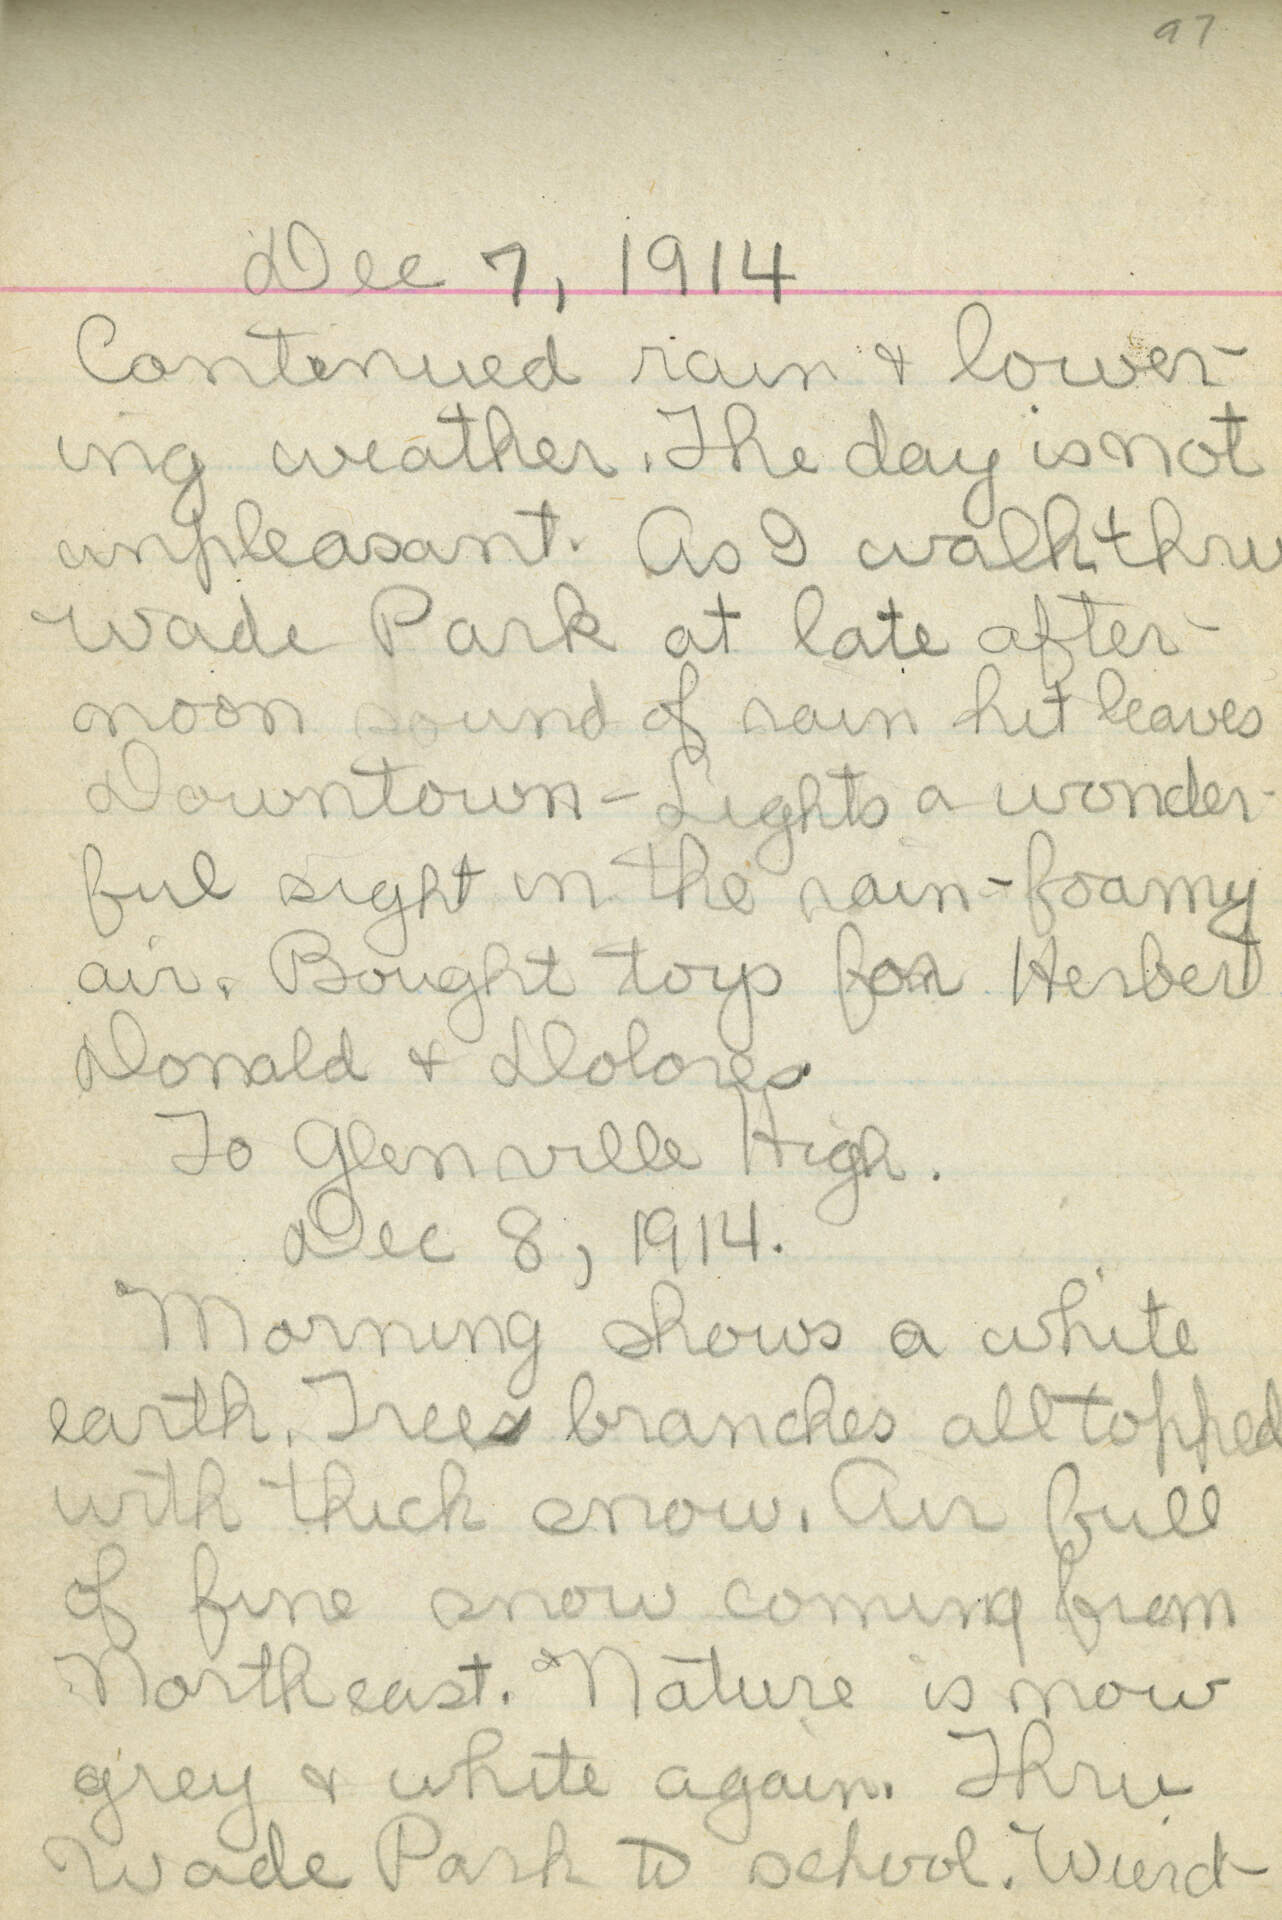 97
Dec 7, 1914
Continued rain & lower-
ing weather. The day is not
unpleasant. As I walk thru
Wade Park at late after-
noon sound of rain hit leaves
Downtown - Lights a wonder-
ful sight in the rain-foamy
air. Bought toys for Herbert
Donald & Dolores
To Glenville High.
Dec 8, 1914.
Morning shows a white
earth. Trees branches all topped
with thick snow. Air full
of fine snow coming from
Northeast. Nature is now
grey & white again. Thru
Wade Park to school. Wierd-